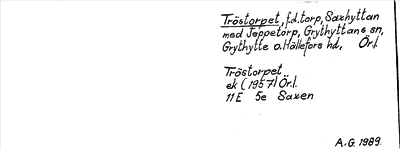 Tröstorpet, f.d.torp, Saxhyttan
med Jeppetorp, Grythyttans sn,
Grythytte o. Hällefors hd, Ör.l.
Tröstorpet
ek (1957) Ör.l.
11E 5e Saxen
A.G. 1989.